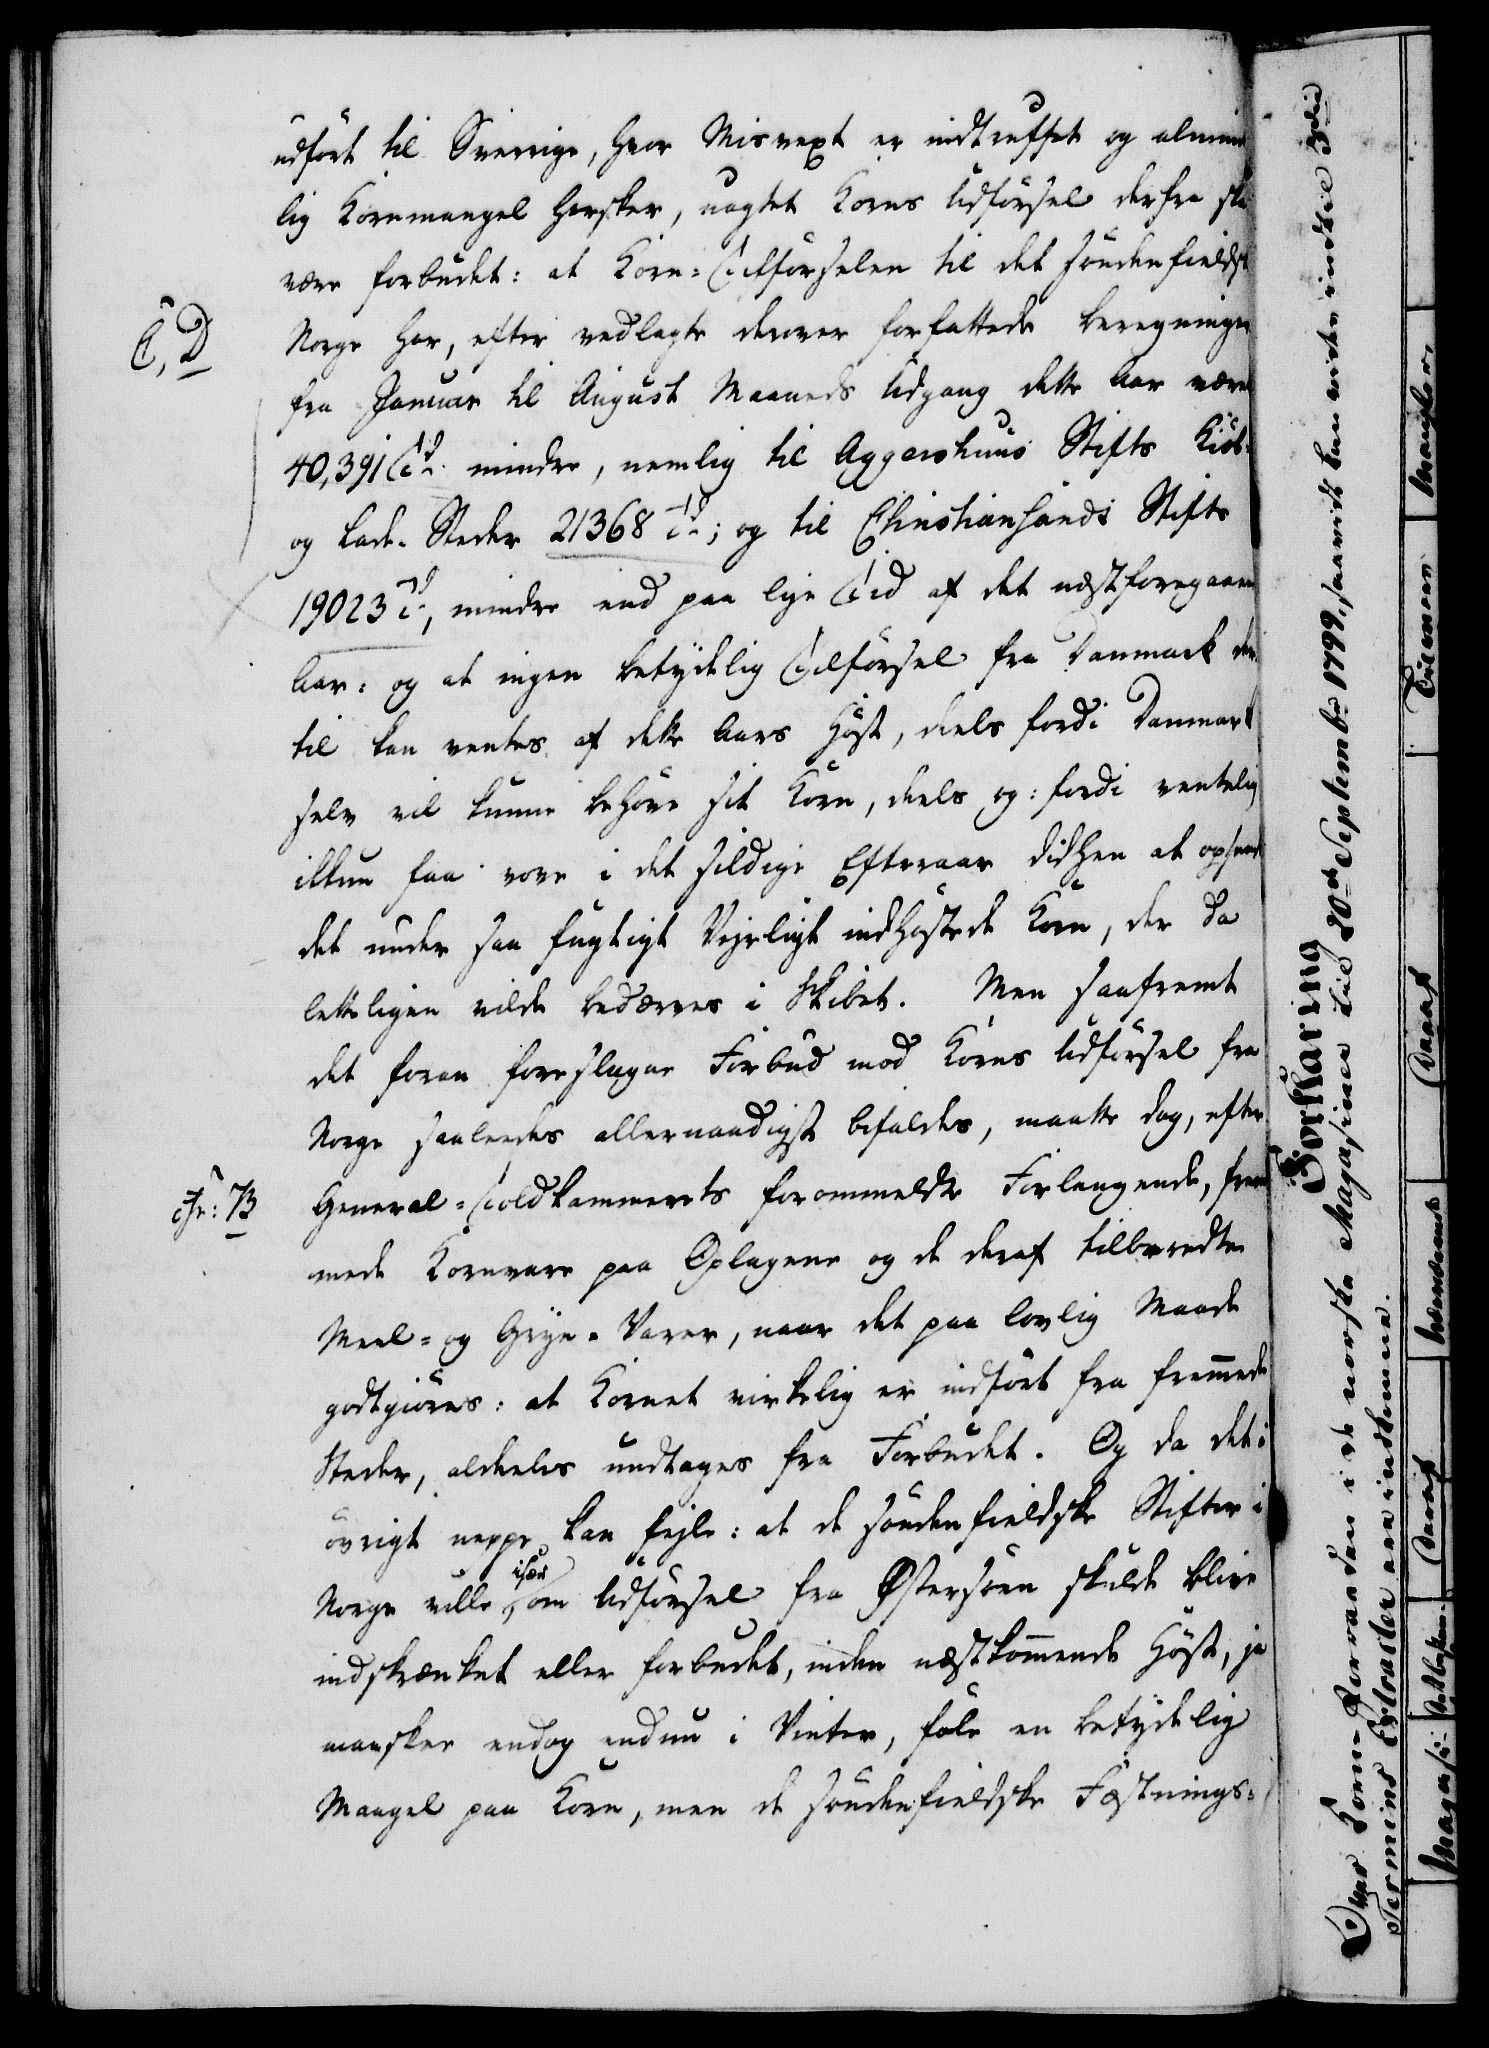 udført til Sverrige, hvor Misvext er indtruffet og almind
lig Kornmangel hersker, uagtet Korns Udførsel derfra ska
være forbudet: at Korn-Tilførselen til det søndenfieldsk
C, D
Norge har, efter vedlagte derover forfattede Beregninger
fra Januar til August Maaneds Udgang dette Aar været
40,391 Tdr. mindre, nemlig til Aggershuus Stifts Kiøb-
og Lade-Steder 21368 Tdr; og til Christiansands Stifts
19023 Tdr, mindre end paa lige Tid af det næstforegaaen
Aar: og at ingen betydelig Tilførsel fra Danmark der
til kan ventes af dette Aars Høst, deels fordi Danmark
selv vil kunne behøve sit Korn, deels og: fordi ventelig
ikkun faa vove i det sildige Efteraar didhen at opsende
det under saa fugtigt Vejrligt indhøstede Korn, der da
letteligen vilde bedærves i Skibet. Men saafremt
det foran foreslagne Forbud mod Korns Udførsel fra
Norge saaledes allernaadigst bifaldes, maatte dog, efter
cfr: B
General-Toldkammerets forommeldte Forlangende, frem
mede Kornvare paa Oplagene og de deraf tilberedte
Meel- og Gryn-Varer, naar det paa lovlig Maade
godtgiøres: at Kornet virkelig er indført fra fremmede
Steder, aldeeles undtages fra Forbudet. Og da det i
øvrigt neppe kan fejle: at de søndenfieldske Stifter i
Norge ville, især om Udførsel fra Østersøen skulde blive
indskrænket eller forbudet, inden næstkommende Høst, ja
maaskee endog endnu i Vinter, føle en betydelig
Mangel paa Korn, men de søndenfieldske Fæstnings-
Forklaring
Over Korn-Forraaden i de norske Magasiner til 30te Septembr 1799, saavidt
Termins Extracter ere indkomne.
Magasi-
deraf
deraf
Mangler